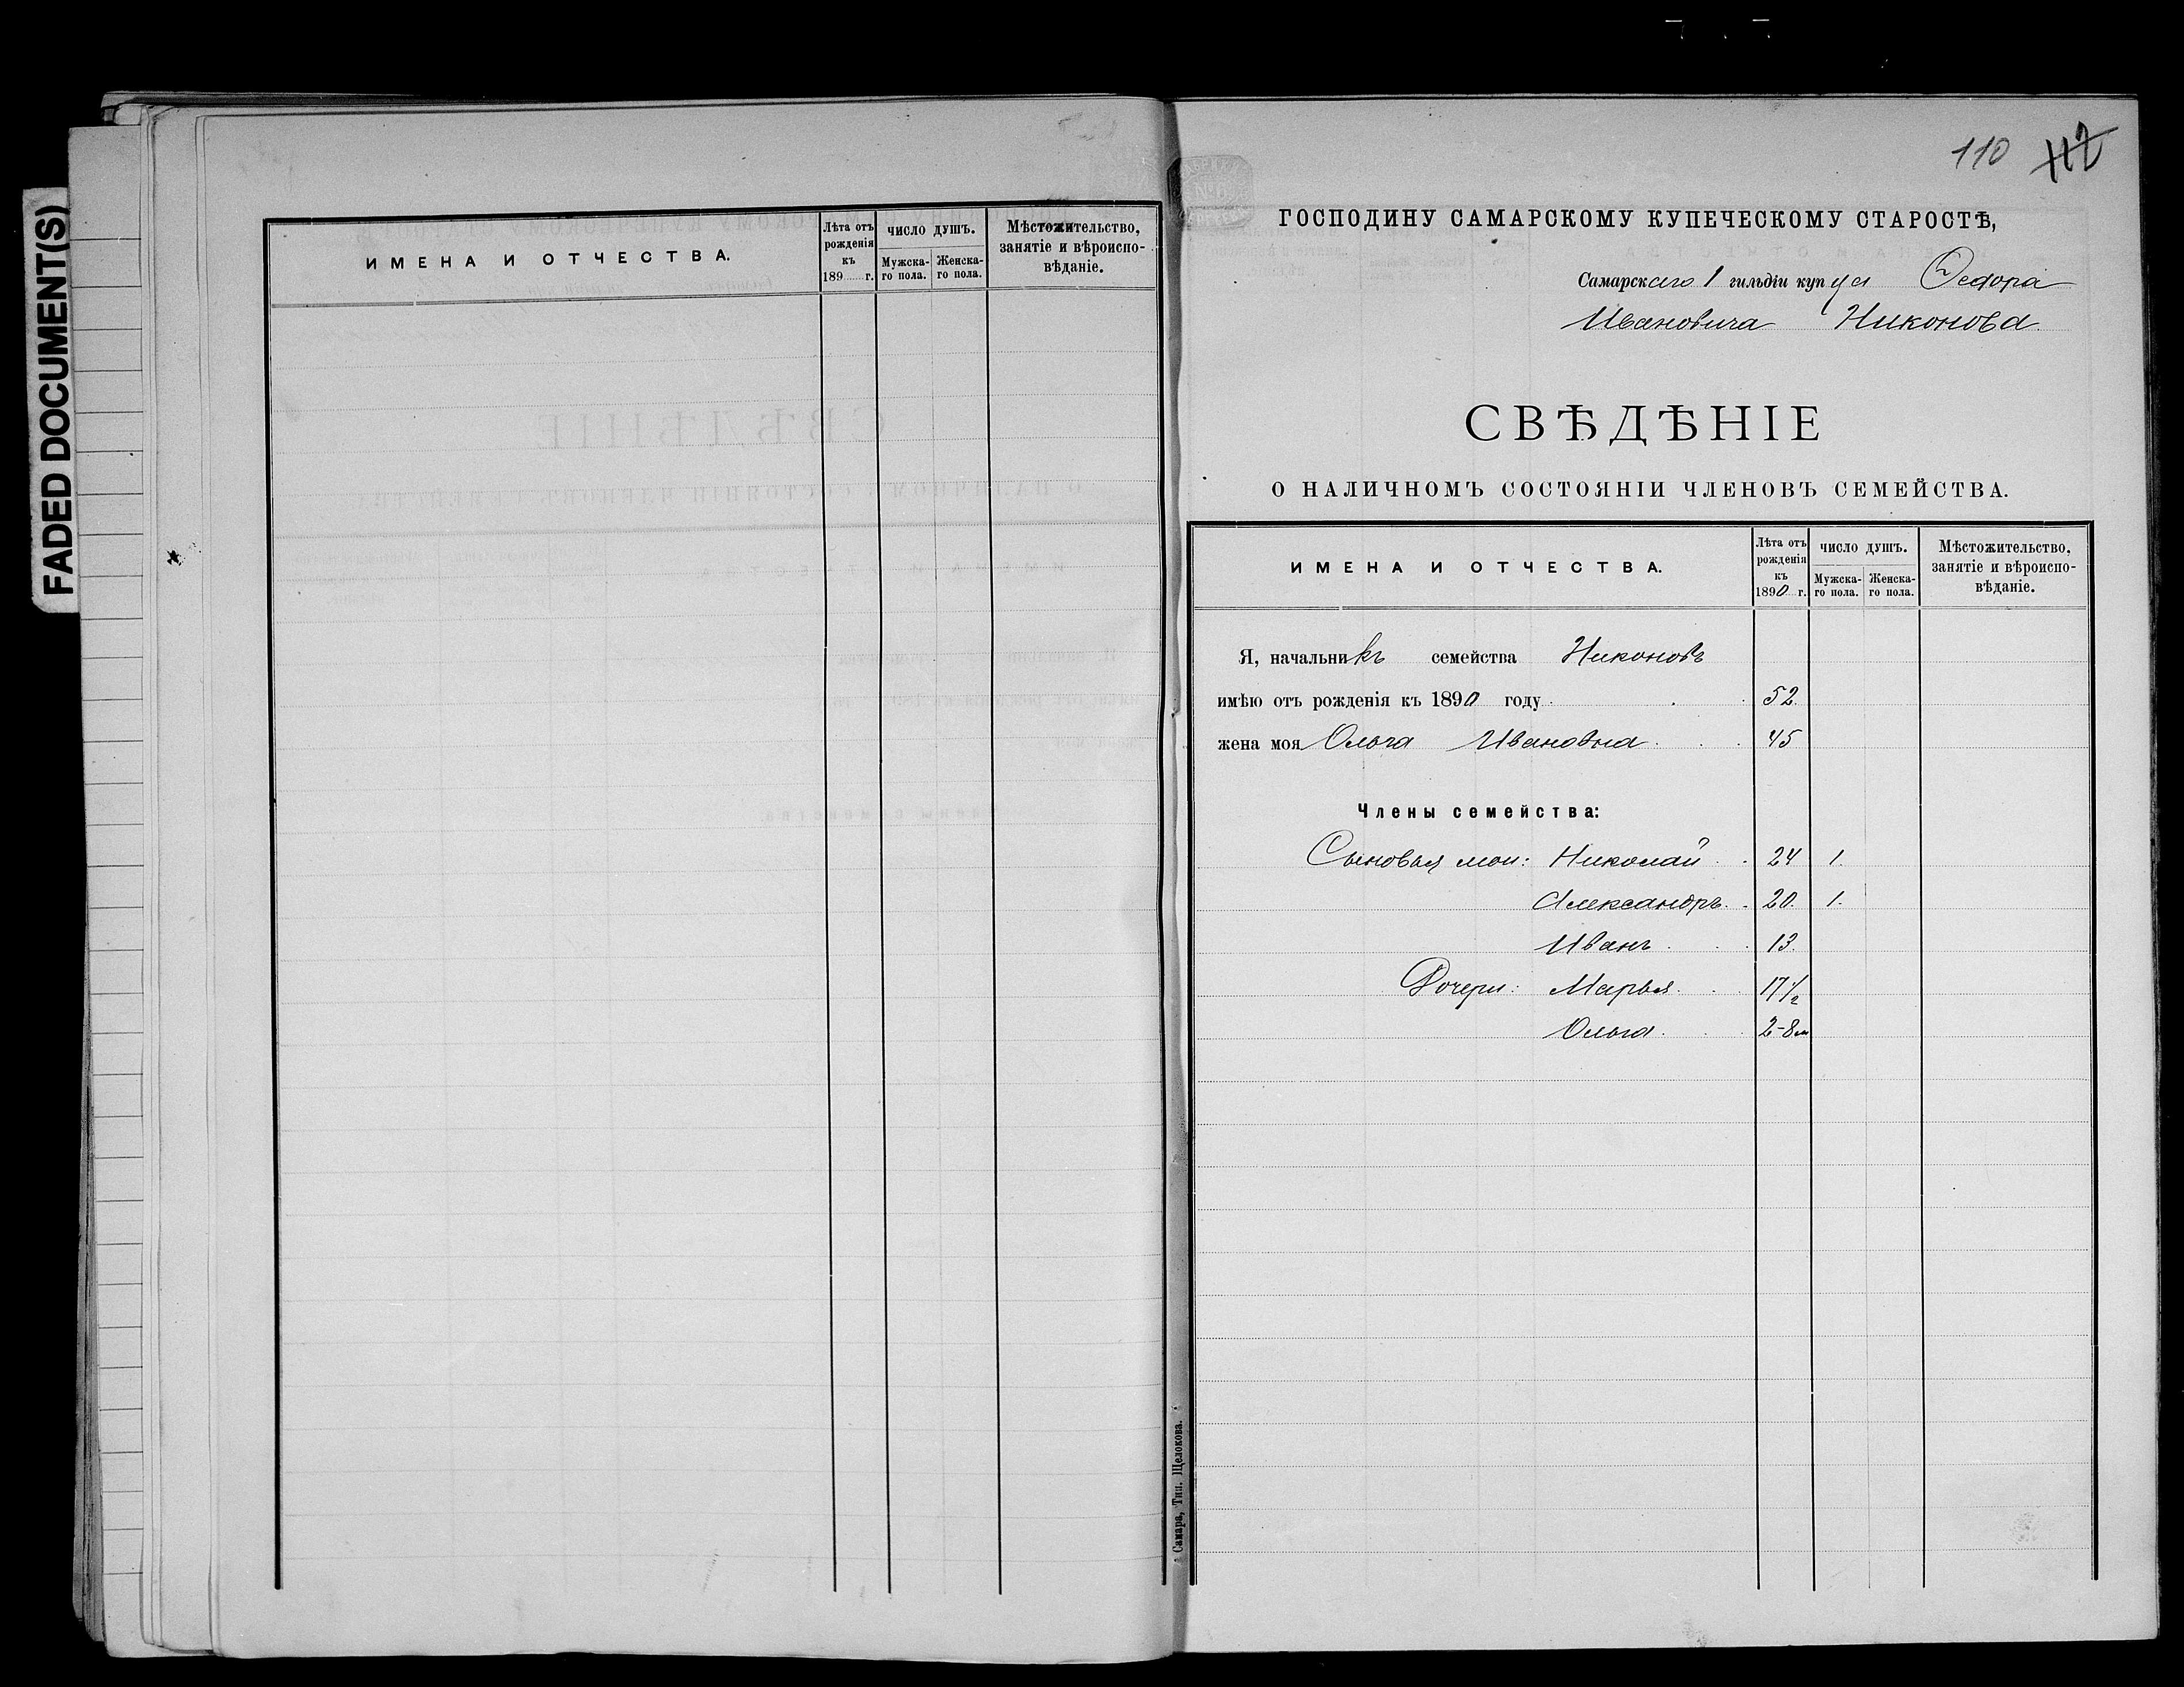 FADED DOCUMENT(S)
ИМЕНА И ОТЧЕСТВА.
Лѣта отъ рожденія къ 189 г.
ЧИСЛО ДУШЪ.
Мужска-го пола.
Женска-го пола.
Мѣстожительство, занятіе и вѣроиспо-вѣданіе.
110 112
ГОСПОДИНУ САМАРСКОМУ КУПЕЧЕСКОМУ СТАРОСТѢ,
Самарскаго 1 гильдіи купца Федора
Ивановича Никонова
СВѢДѢНІЕ
О НАЛИЧНОМЪ СОСТОЯНІИ ЧЛЕНОВЪ СЕМЕЙСТВА.
ИМЕНА И ОТЧЕСТВА.
Лѣта отъ рожденія къ 1890 г.
ЧИСЛО ДУШЪ.
Мужска-го пола.
Женска-го пола.
Мѣстожительство, занятіе и вѣроиспо-вѣданіе.
Я, начальникъ семейства Никоновъ
имѣю отъ рожденія къ 1890 году 52
жена моя Ольга Ивановна 45
Члены семейства:
Сыновья мои: Николай 24 1.
Александръ 20. 1.
Иванъ 13.
Дочери: Марья 17 1/2
Ольга 2-8м
Самара, Тип. Щелокова.